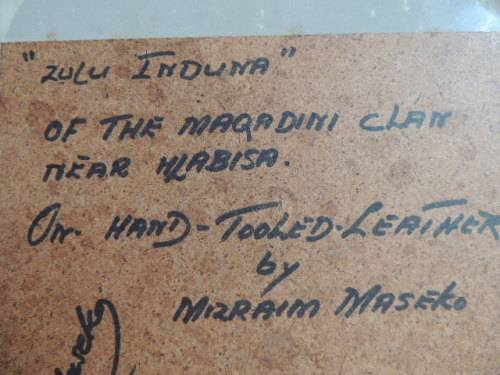 "ZULU INDUNA"
OF THE MAQADINI CLAN
NEAR HLABISA.
ON. HAND-TOOLED-LEATHER
by
MIZRAIM MASEKO